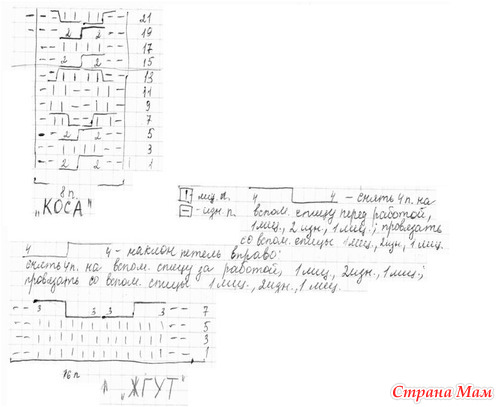 21
19
2 2
17
15
2 2
13
11
9
7
5
2 2
3
1
2 2
8 п.
„КОСА"
| - лиц. п.
− - изн. п.
4 4 - снять 4 п. на
вспом. спицу перед работой,
1 лиц., 2 изн., 1 лиц.; провязать
со вспом. спицы 1 лиц., 2 изн., 1 лиц.
4 4 - наклон петель вправо:
снять 4 п. на вспом. спицу за работой, 1 лиц., 2 изн., 1 лиц.;
провязать со вспом. спицы 1 лиц., 2 изн., 1 лиц.
3 3 3 3 7
5
3
1
16 п
„ЖГУТ"
Страна Мам